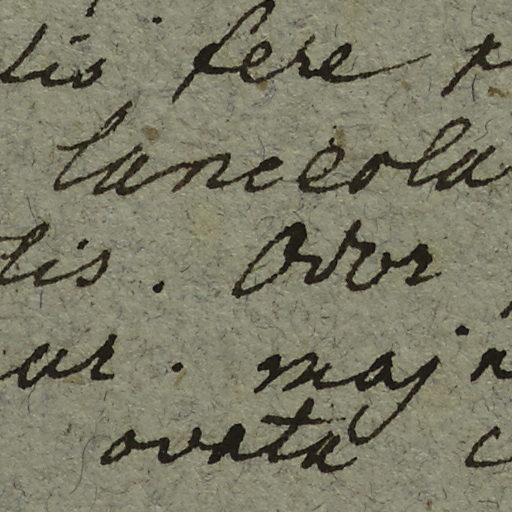 lis fere
lanceola
lis. Odor
ar. maj
ovata c